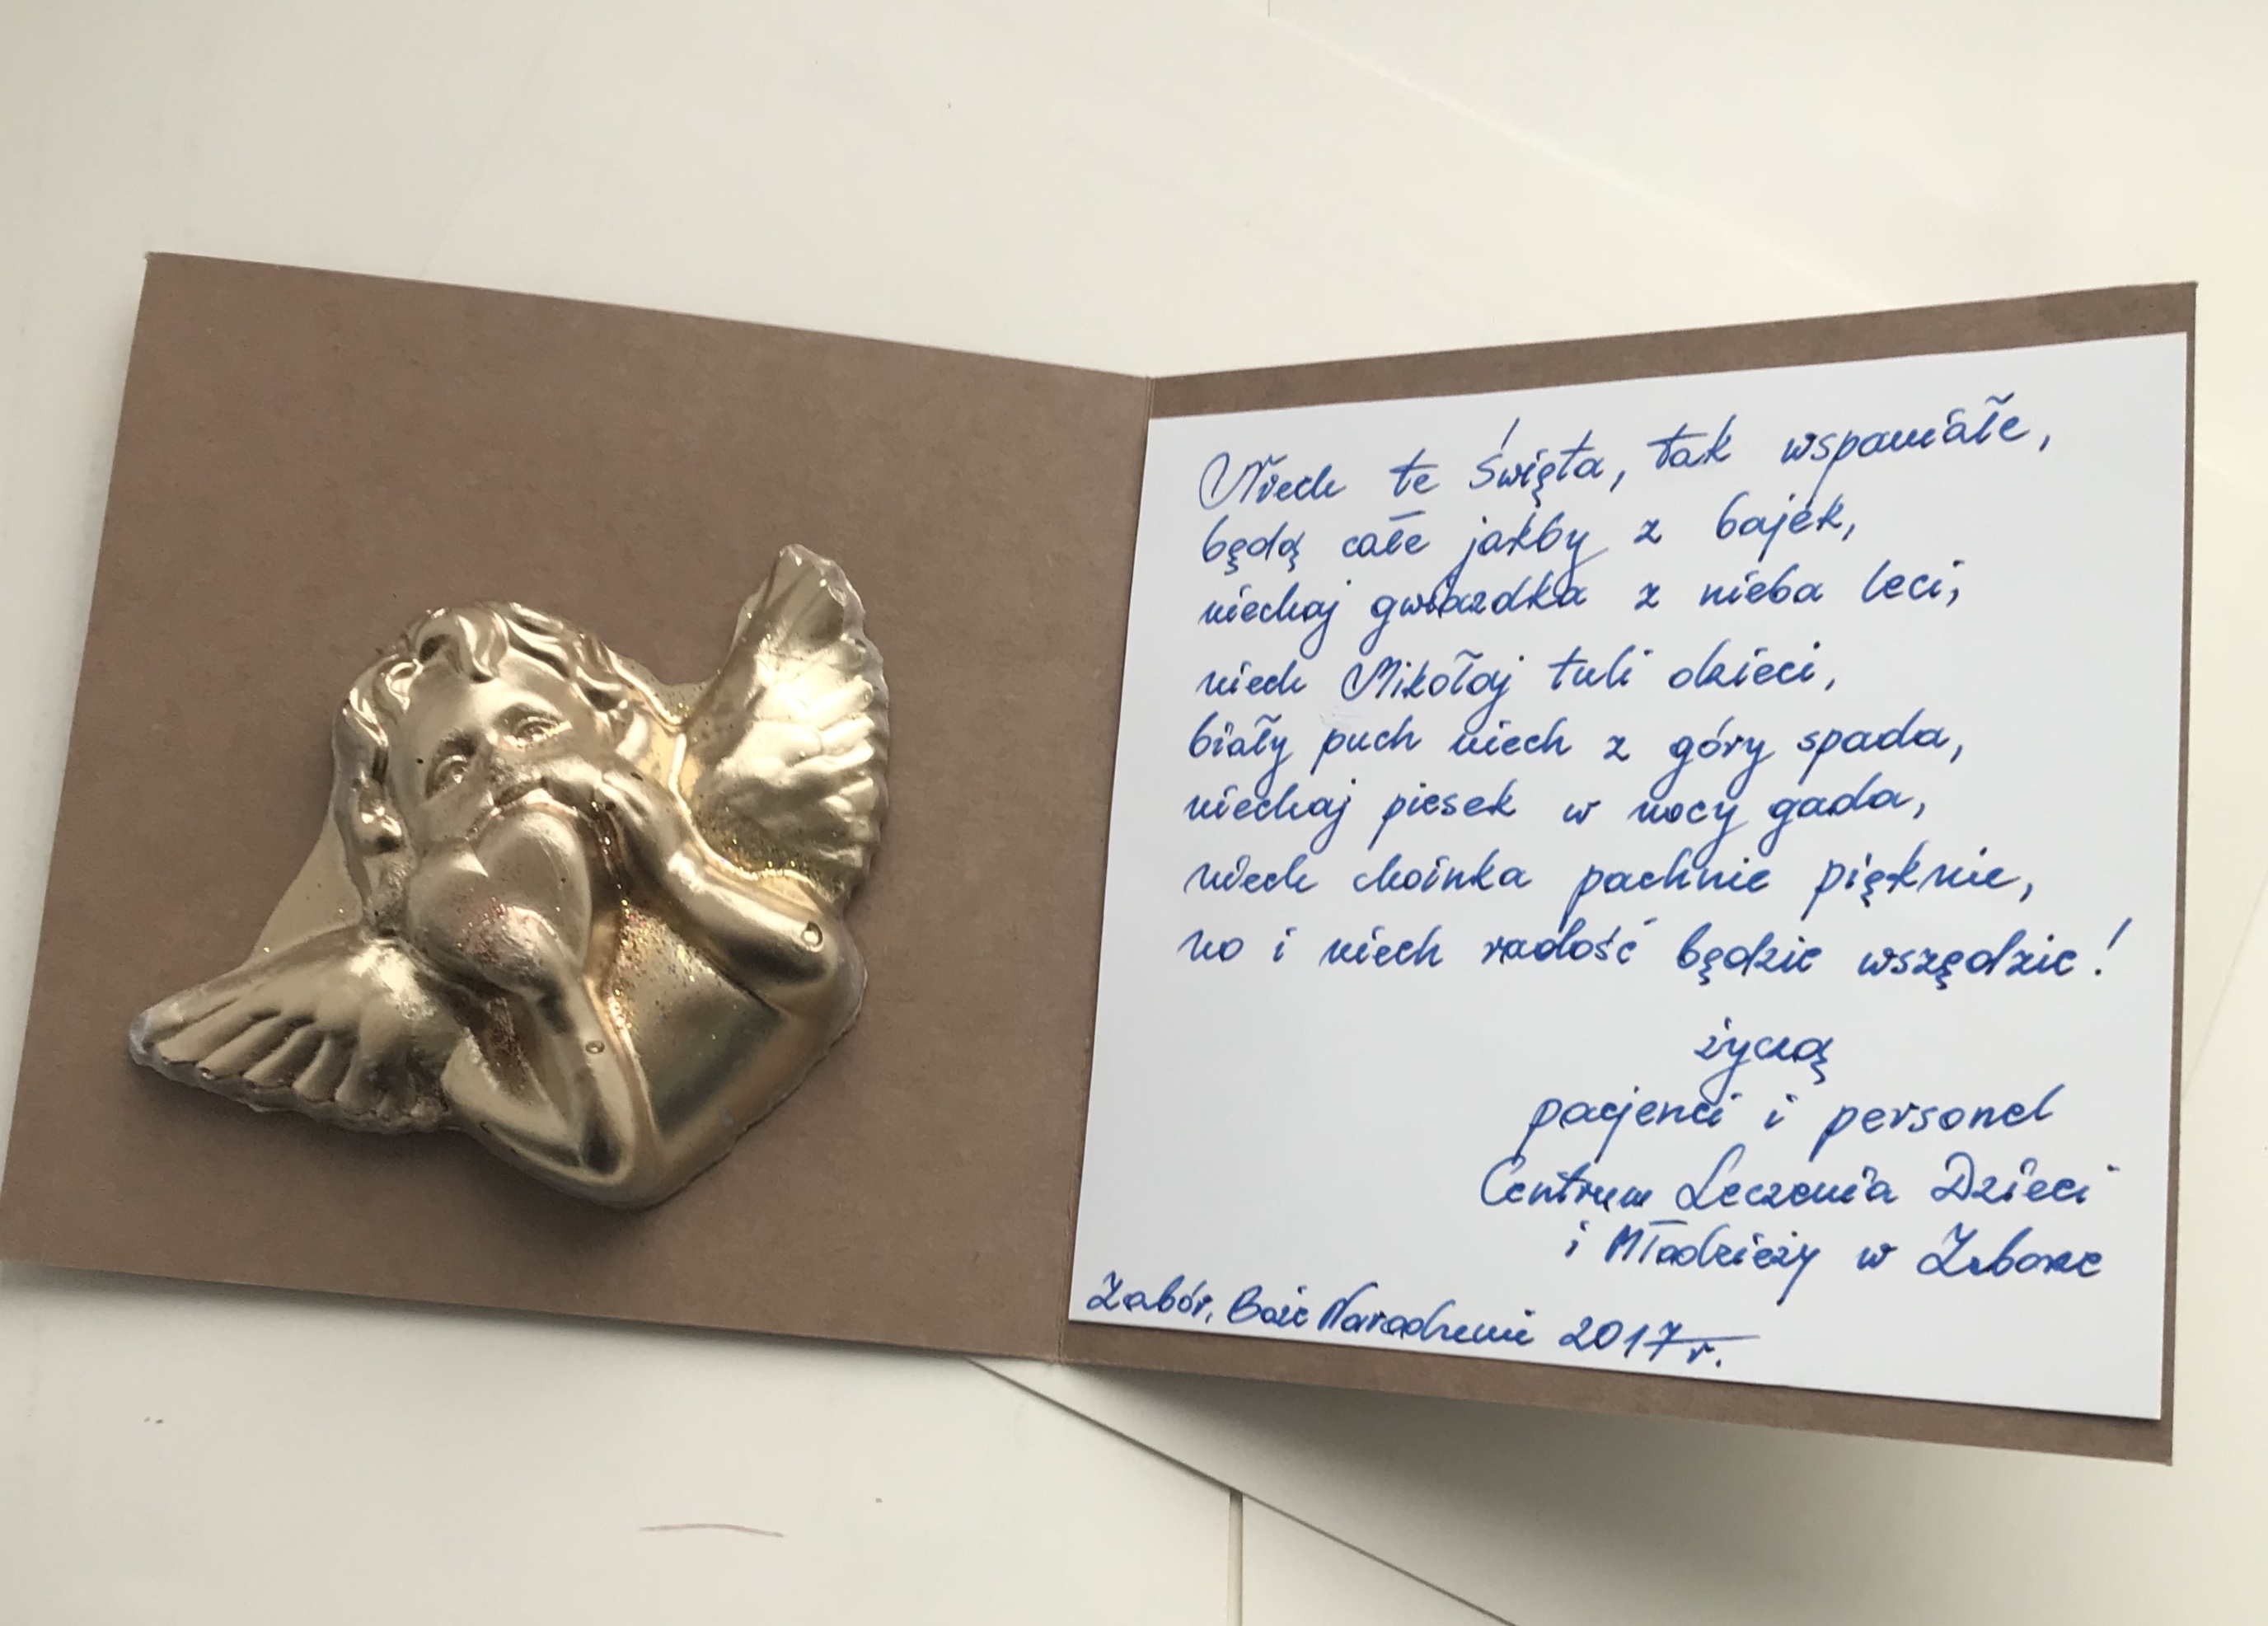 Niech te Święta, tak wspaniałe,
będą całe jakby z bajek,
niechaj gwiazdka z nieba leci,
niech Mikołaj tuli dzieci,
biały puch niech z góry spada,
niechaj piesek w nocy gada,
niech choinka pachnie pięknie,
no i niech radość będzie wszędzie!
życzą
pacjenci i personel
Centrum Leczenia Dzieci
i Młodzieży w Zaborze
Zabór, Boże Narodzenie 2017 r.